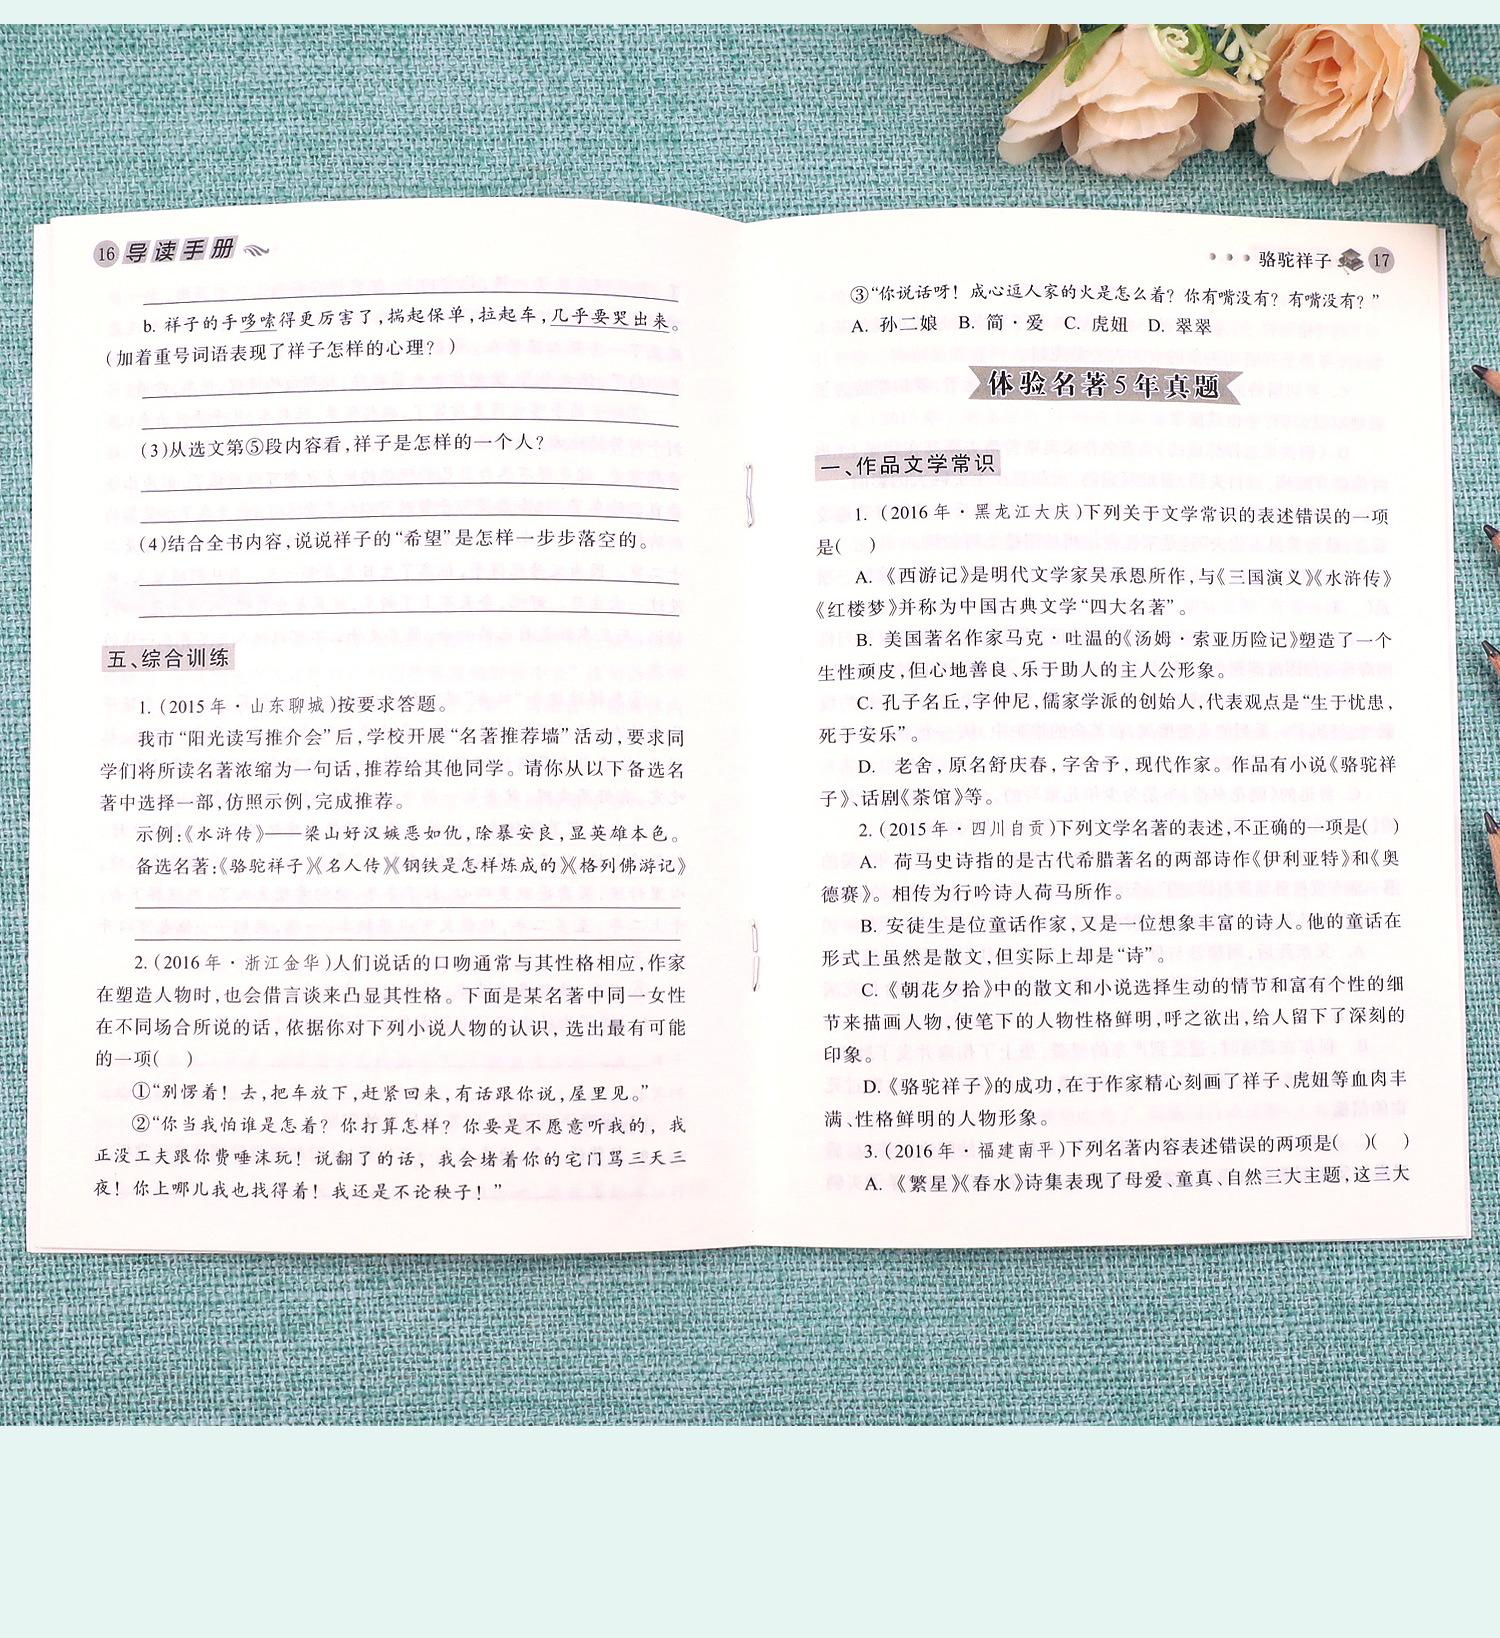 16 导读手册
b. 祥子的手哆嗦得更厉害了,揣起保单,拉起车,几乎要哭出来。
(加着重号词语表现了祥子怎样的心理?)
(3)从选文第⑤段内容看,祥子是怎样的一个人?
(4)结合全书内容,说说祥子的“希望”是怎样一步步落空的。
五、综合训练
1. (2015年·山东聊城)按要求答题。
我市“阳光读写推介会”后,学校开展“名著推荐墙”活动,要求同
学们将所读名著浓缩为一句话,推荐给其他同学。请你从以下备选名
著中选择一部,仿照示例,完成推荐。
示例:《水浒传》——梁山好汉嫉恶如仇,除暴安良,显英雄本色。
备选名著:《骆驼祥子》《名人传》《钢铁是怎样炼成的》《格列佛游记》
2. (2016年·浙江金华)人们说话的口吻通常与其性格相应,作家
在塑造人物时,也会借言谈来凸显其性格。下面是某名著中同一女性
在不同场合所说的话,依据你对下列小说人物的认识,选出最有可能
的一项( )
①“别愣着!去,把车放下,赶紧回来,有话跟你说,屋里见。”
②“你当我怕谁是怎着?你打算怎样?你要是不愿意听我的,我
正没工夫跟你费唾沫玩!说翻了的话,我会堵着你的宅门骂三天三
夜!你上哪儿我也找得着!我还是不论秧子!”
骆驼祥子 17
③“你说话呀!成心逗人家的火是怎么着?你有嘴没有?有嘴没有?”
A. 孙二娘 B. 简·爱 C. 虎妞 D. 翠翠
体验名著5年真题
一、作品文学常识
1. (2016年·黑龙江大庆)下列关于文学常识的表述错误的一项
是( )
A. 《西游记》是明代文学家吴承恩所作,与《三国演义》《水浒传》
《红楼梦》并称为中国古典文学“四大名著”。
B. 美国著名作家马克·吐温的《汤姆·索亚历险记》塑造了一个
生性顽皮,但心地善良、乐于助人的主人公形象。
C. 孔子名丘,字仲尼,儒家学派的创始人,代表观点是“生于忧患,
死于安乐”。
D. 老舍,原名舒庆春,字舍予,现代作家。作品有小说《骆驼祥
子》、话剧《茶馆》等。
2. (2015年·四川自贡)下列文学名著的表述,不正确的一项是( )
A. 荷马史诗指的是古代希腊著名的两部诗作《伊利亚特》和《奥
德赛》。相传为行吟诗人荷马所作。
B. 安徒生是位童话作家,又是一位想象丰富的诗人。他的童话在
形式上虽然是散文,但实际上却是“诗”。
C. 《朝花夕拾》中的散文和小说选择生动的情节和富有个性的细
节来描画人物,使笔下的人物性格鲜明,呼之欲出,给人留下了深刻的
印象。
D. 《骆驼祥子》的成功,在于作家精心刻画了祥子、虎妞等血肉丰
满、性格鲜明的人物形象。
3. (2016年·福建南平)下列名著内容表述错误的两项是( )( )
A. 《繁星》《春水》诗集表现了母爱、童真、自然三大主题,这三大